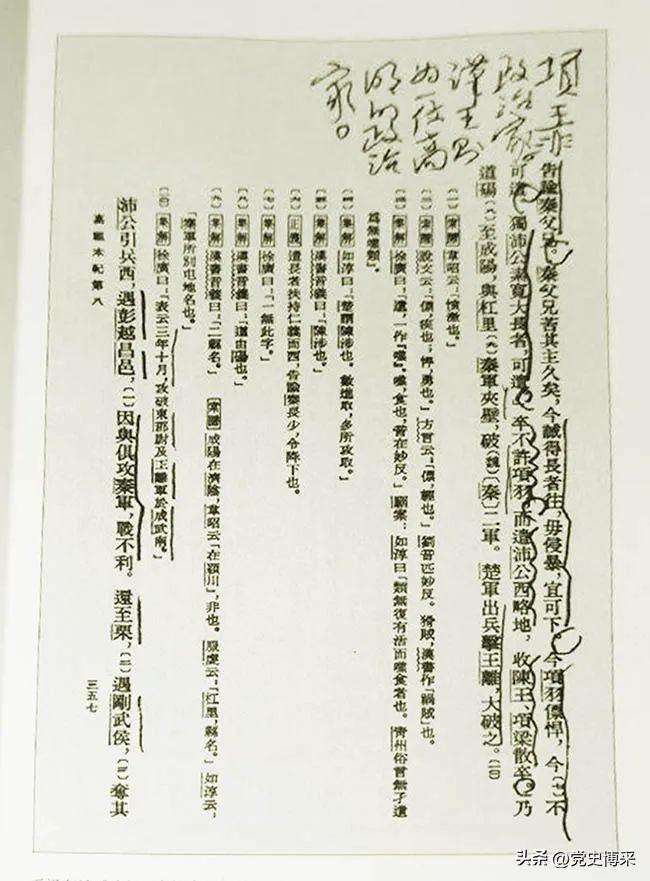 項王非
政治家。
漢王則
为一位高
明的政治
家。
告諭秦父兄。秦父兄苦其主久矣，今誠得長者往，毋侵暴，宜可下。今項羽僄悍，今〔七〕不
可遣。獨沛公素寬大長者，可遣。」卒不許項羽，而遣沛公西略地，收陳王、項梁散卒。乃
道碭〔八〕至成陽，與杠里〔九〕秦軍夾壁，破（魏）〔秦〕二軍。楚軍出兵擊王離，大破之。〔一0〕
〔一〕索隱韋昭云：「憤激也。」
〔二〕索隱說文云：「僄，疾也；悍，勇也。」方言云：「僄，輕也。」劉音匹妙反。猾賊，漢書作「禍賊」也。
〔三〕集解徐廣曰：「遺，一作『噍』。噍，食也，音在妙反。」駰案：如淳曰「類無復有活而噍食者也。青州俗言無孑遺
爲無噍類」。
〔四〕集解如淳曰：「楚謂陳涉也。數進取，多所攻取。」
〔五〕集解漢書音義曰：「陳涉也。」
〔六〕正義遣長者扶持仁義而西，告諭秦長少，令降下也。
〔七〕集解徐廣曰：「一無此字。」
〔八〕集解漢書音義曰：「道由碭也。」
〔九〕集解漢書音義曰：「二縣名。」索隱成陽在濟陰，韋昭云「在潁川」，非也。服虔云：「杠里，縣名。」如淳云：
「秦軍所別屯地名也。」
〔一0〕集解徐廣曰：「表云三年十月，攻破東郡尉及王離軍於成武南。」
沛公引兵西，遇彭越昌邑，〔一〕因與俱攻秦軍，戰不利。還至栗，〔二〕遇剛武侯，〔三〕奪其
高祖本紀第八
三五七
头条 @党史博采